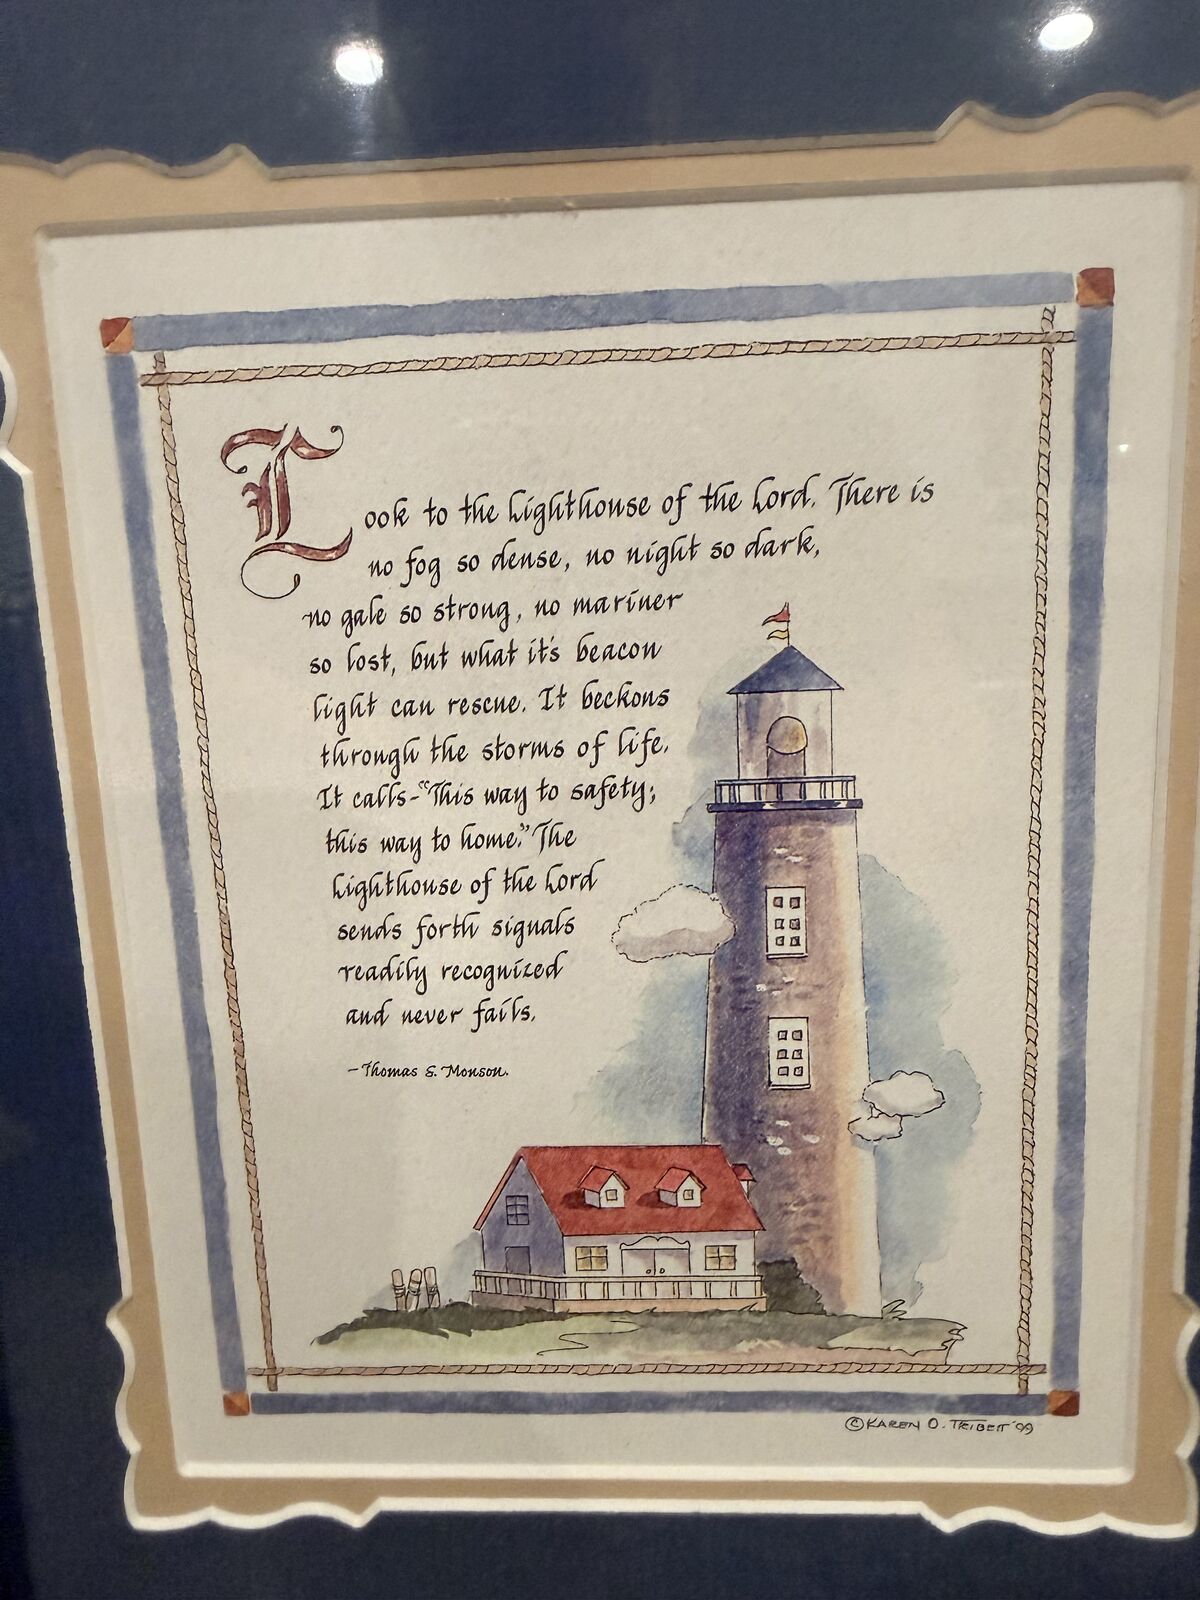 Look to the Lighthouse of the Lord. There is
no fog so dense, no night so dark,
no gale so strong, no mariner
so lost, but what it's beacon
light can rescue. It beckons
through the storms of life.
It calls-"This way to safety;
this way to home." The
Lighthouse of the Lord
sends forth signals
readily recognized
and never fails.
-Thomas S. Monson.
©KAREN O. TRIBETT '99